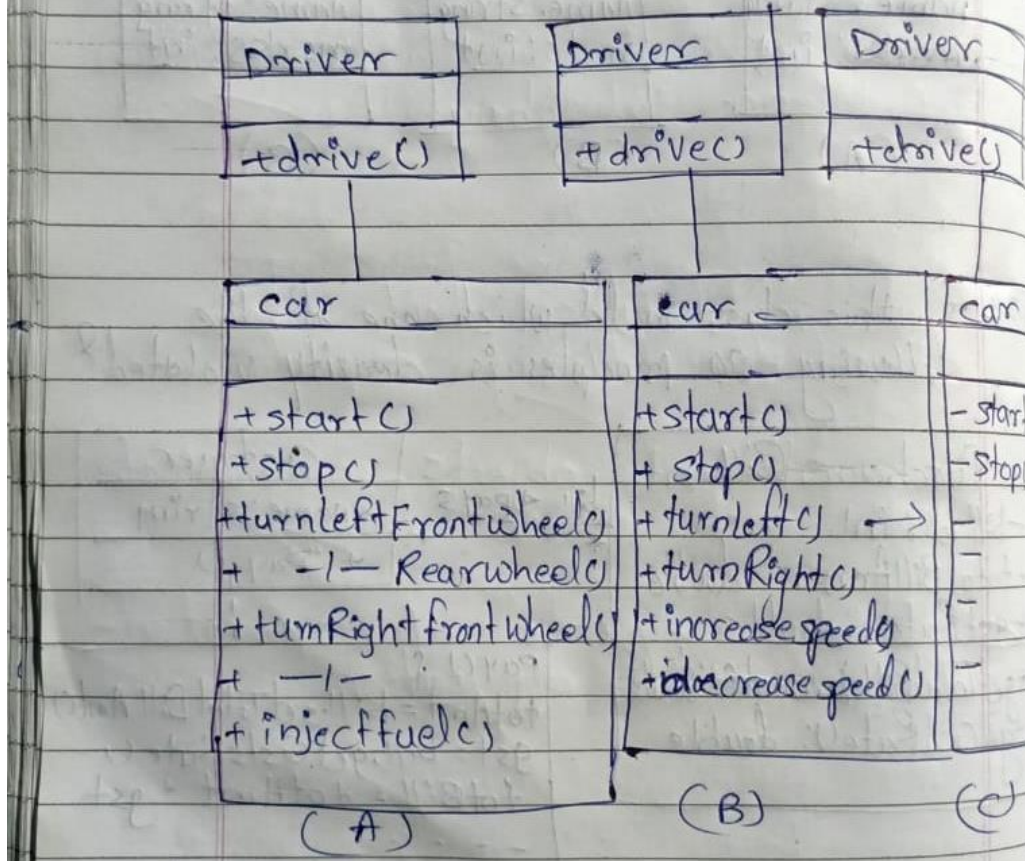 Driver
+drive()
car
+start()
+stop()
+turnleftFrontwheel()
+ -1- Rearwheel()
+turnRightfrontwheel()
+ -1-
+injectfuel()
(A)
Driver
+drive()
car
+start()
+stop()
+turnleft() →
+turnRight()
+increase speed()
+decrease speed()
(B)
Driver
+drive()
car
- Start
- Stop
-
-
-
-
(C)